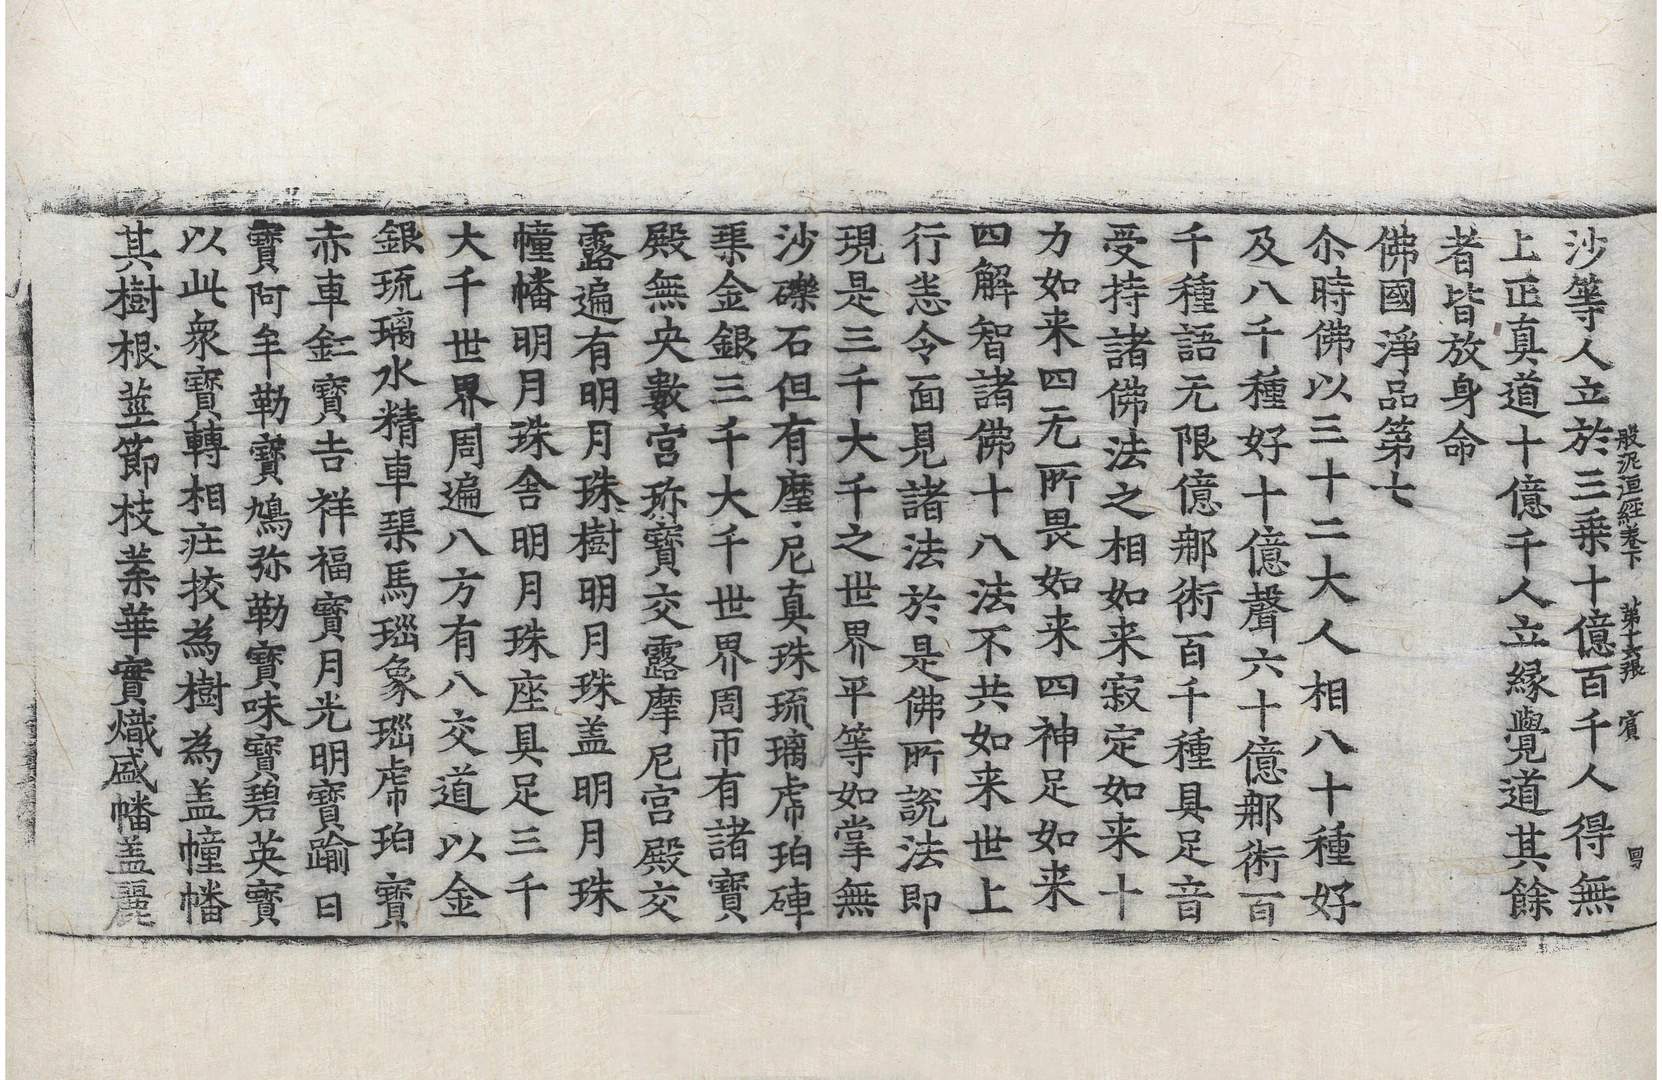 沙等人立於三乗十億百千人得無
上正真道十億千人立緣覺道其餘
者皆放身命
佛國淨品第七
尒時佛以三十二大人相八十種好
及八千種好十億聲六十億那術百
千種語无限億那術百千種具足音
受持諸佛法之相如来寂定如来十
力如来四无所畏如来四神足如来
四解智諸佛十八法不共如来世上
行恙令面見諸法於是佛所說法即
現是三千大千之世界平等如掌無
沙礫石但有摩尼真珠琉璃虎珀硨
磲金銀三千大千世界周帀有諸寶
殿無央數宮殊寶交露摩尼宮殿交
露遍有明月珠樹明月珠盖明月珠
幢幡明月珠舍明月珠座具足三千
大千世界周遍八方有八交道以金
銀琉璃水精車𤦲馬瑙象瑙虎珀寶
赤車𤦲寶吉祥福寶月光明寶踰日
寶阿牟勒寶鳩弥勒寶味寶碧英寶
以此衆寶轉相莊挍為樹為盖幢幡
其樹根莖節枝葉華實熾盛幡盖麗
般泥洹經卷下 第十六張 賓